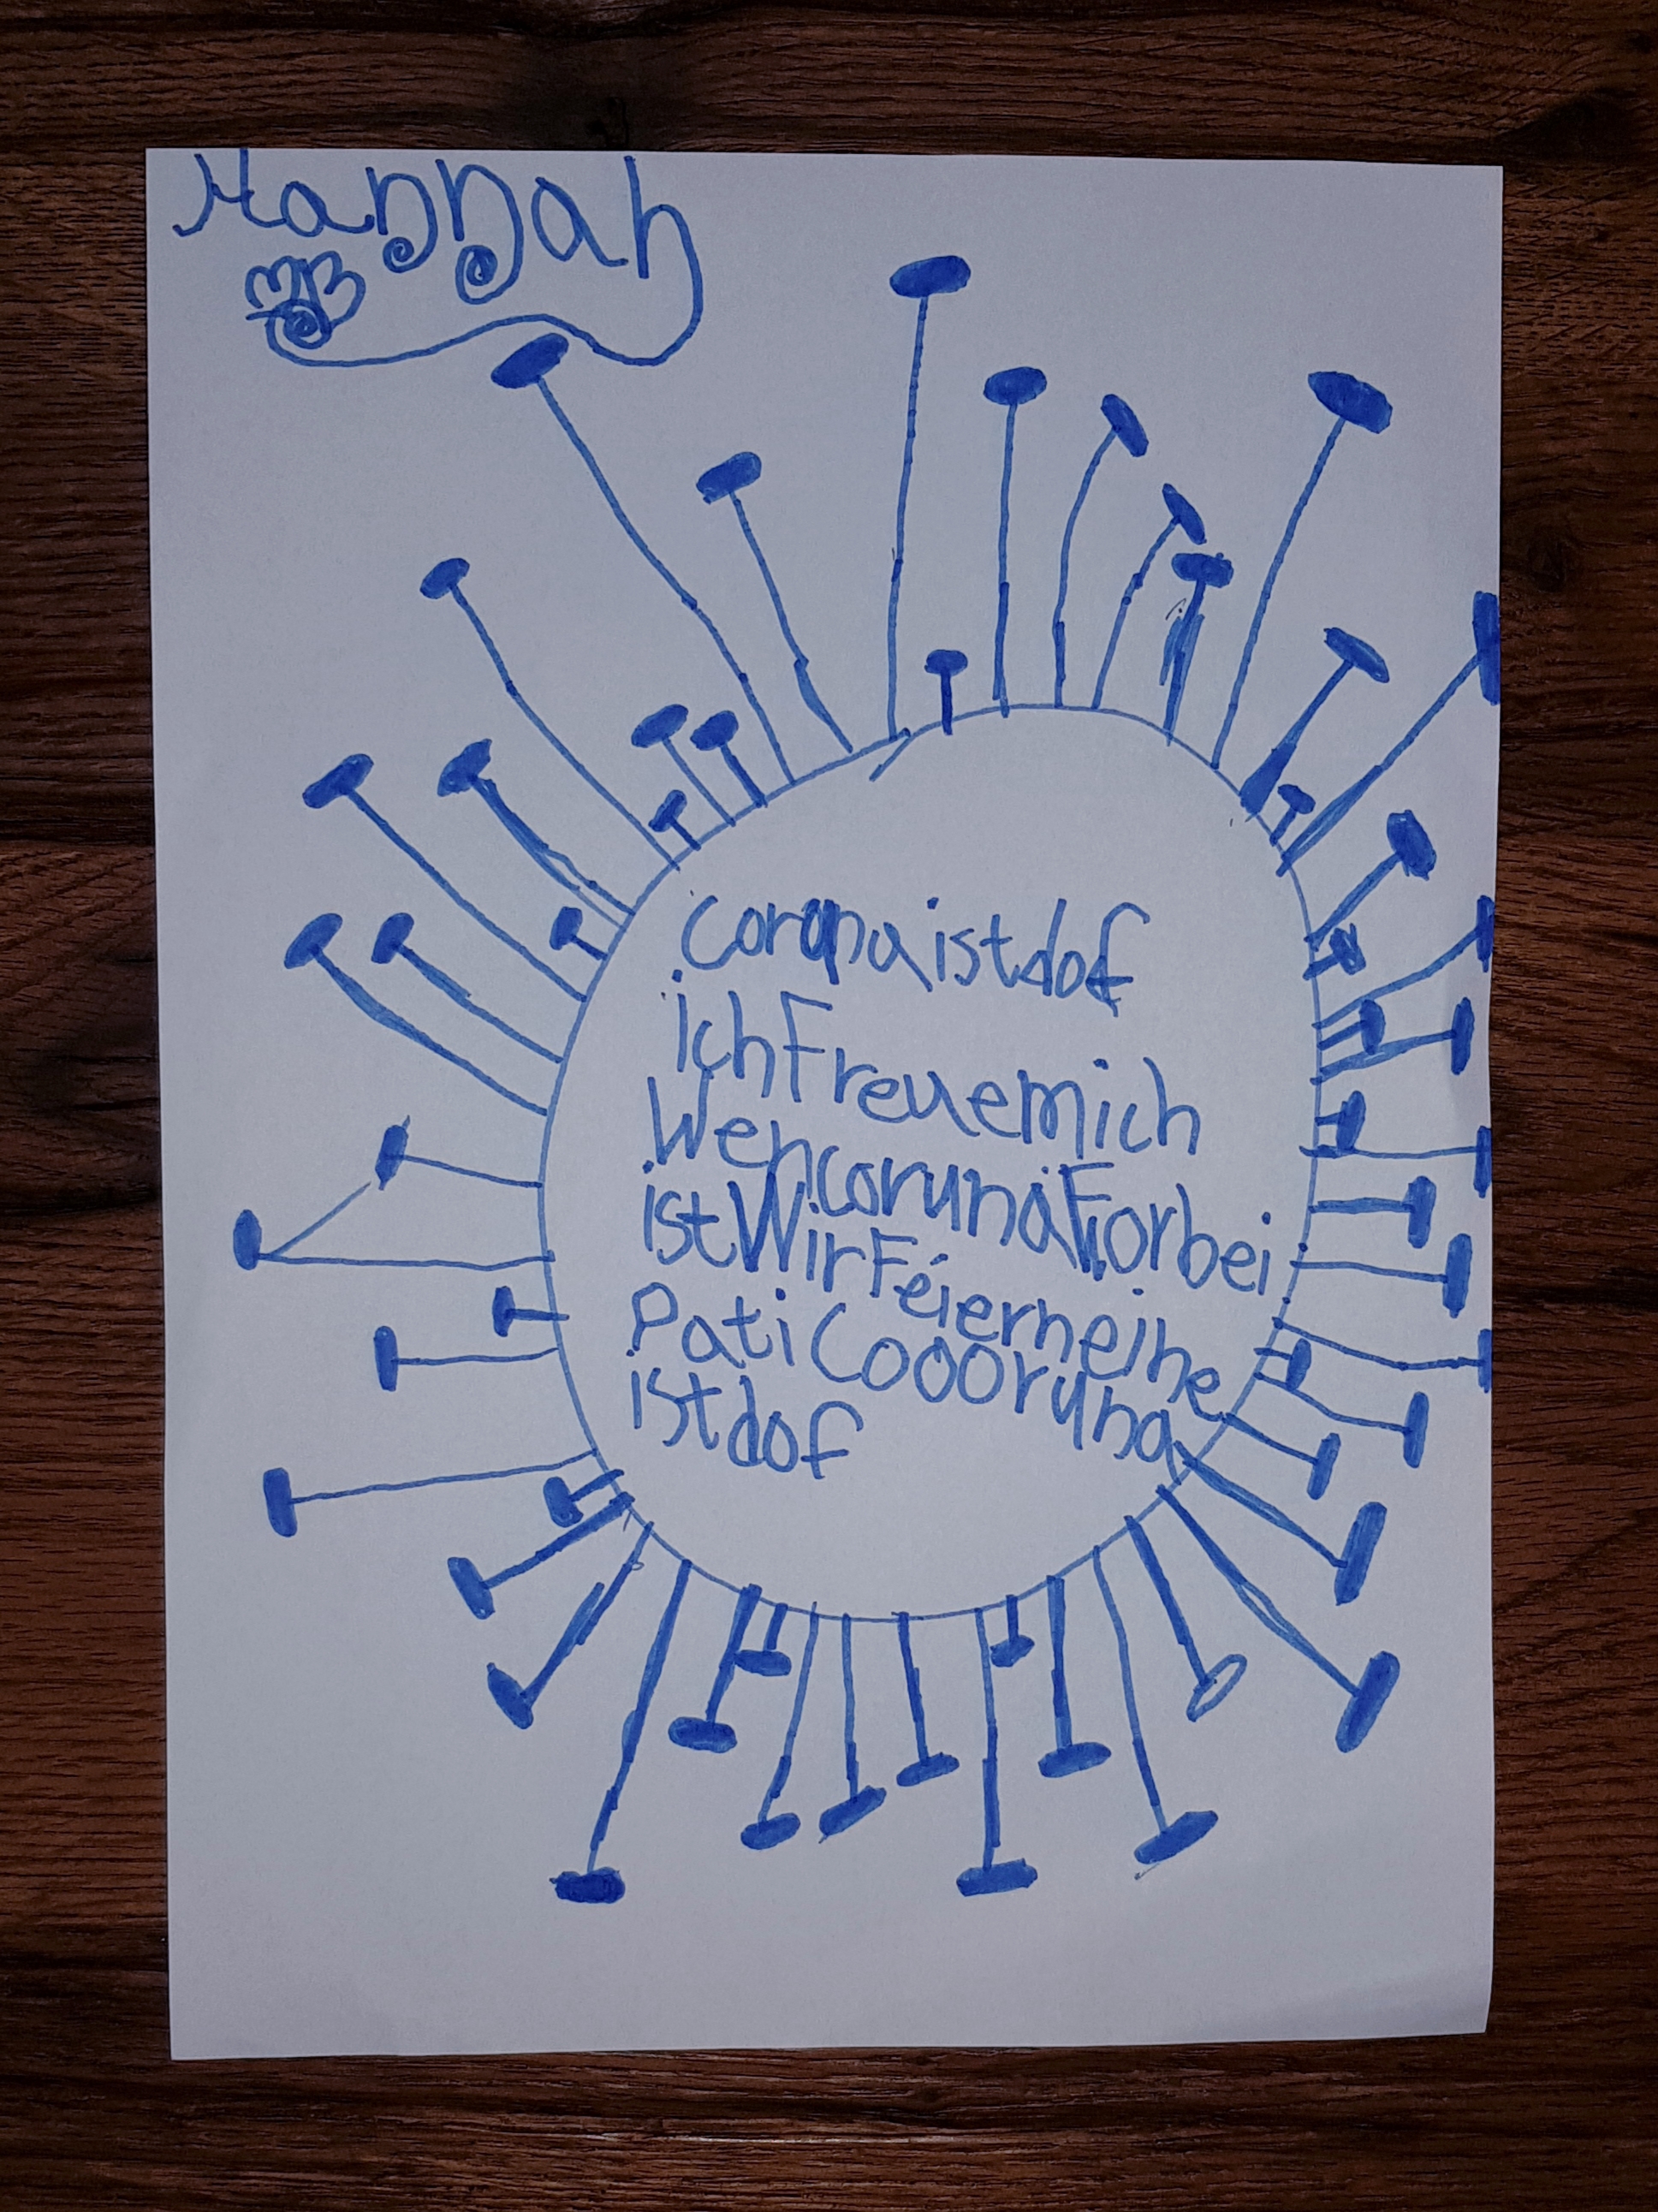 Hannah
coronaistdof
ichFreuemich
WencorunaForbei
istWirFeierneine
Pati Coooruna
istdof